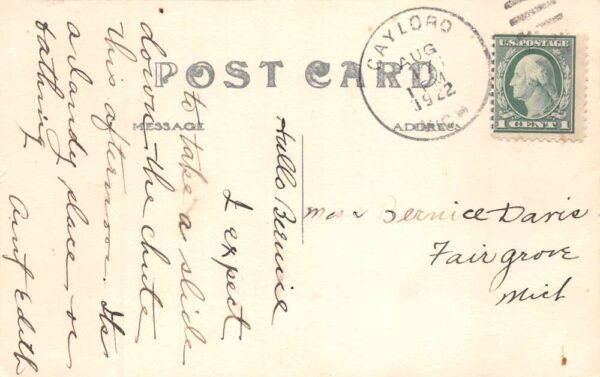 POST CARD
MESSAGE
ADDRESS
GAYLORD
AUG
1922
MICH
U.S. POSTAGE
1 CENT 1
Hullo Bernice
I expect
to take a slide
down the chute
this afternoon. Its
a dandy place
bathing
Aunt Edith
Bernice Davis
Fairgrove
Mich